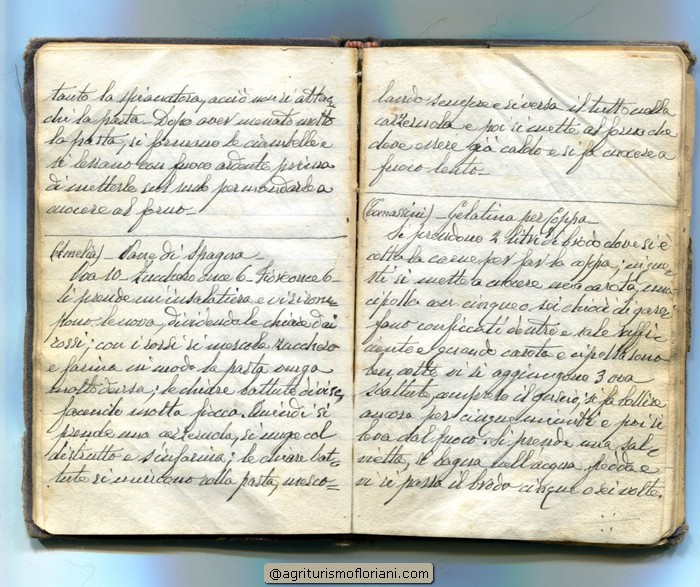 tanto la spianatora, acciò non si attac-
chi la pasta. Dopo aver menato molto
la pasta, si formano le ciambelle e
si lessano con fuoco ardente prima
di metterle sul suolo per mandarle a
cuocere al forno -
(Amelia) - Pane di Spagna -
Uova 10 - Zucchero once 6 - Fior once 6
Si prende un'insalatiera e vi si rom-
pono le uova, dividendo le chiare dai
rossi; con i rossi si mescola zucchero
e farina in modo la pasta venga
molto densa; le chiare battute divise,
facendo molta fiocca. Quindi si
prende una cazzeruola, si unge col
distrutto e s'infarina; le chiare bat-
tute si uniscono alla pasta, mesco-
lando sempre e si versa il tutto nella
cazzeruola e poi si mette al forno che
deve essere già caldo e si fa cuocere a
fuoco lento -
(Tomassini) - Gelatina per Coppa -
Si prendono 2 litri di brodo dove si è
cotta la carne per far la coppa; in que-
sti si mette a cuocere una carota, una
cipolla con cinque o sei chiodi di garo-
fano conficcati dentro e sale suffi-
ciente e quando carota e cipolla sono
ben cotte vi si aggiungono 3 ova
sbattute, compreso il guscio; si fa bollire
ancora per cinque minuti e poi si
leva dal fuoco. Si prende una sal-
vietta, si bagna nell'acqua fredda e
vi si passa il brodo cinque o sei volte.
@agriturismofloriani.com